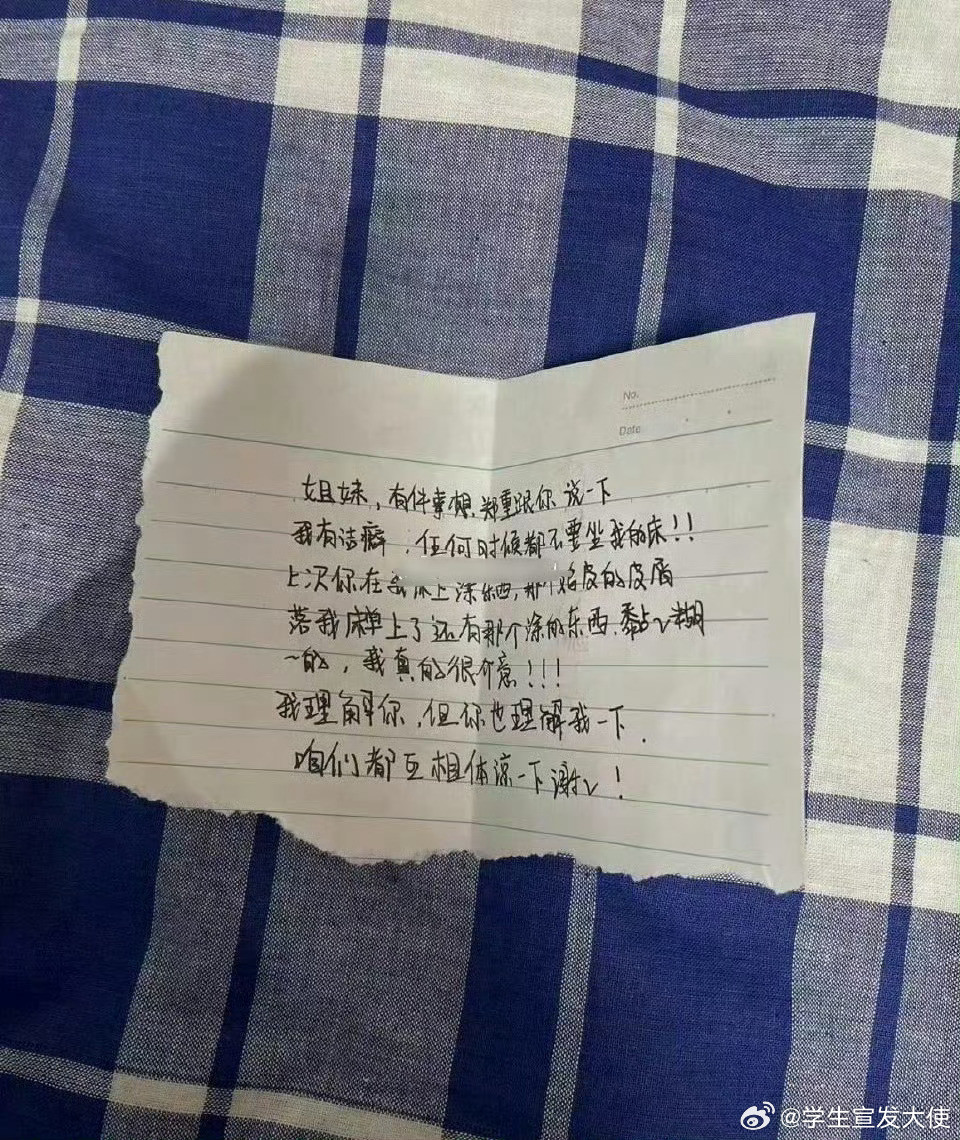 No.
Date
姐妹,有件事想郑重跟你说一下
我有洁癖,任何时候都不要坐我的床!!
上次你在我床上涂东西,那个皮的皮屑
落我床单上了还有那个涂的东西.黏~糊
~的,我真的很介意!!!
我理解你,但你也理解我一下.
咱们都互相体谅一下谢~!
@学生宣发大使